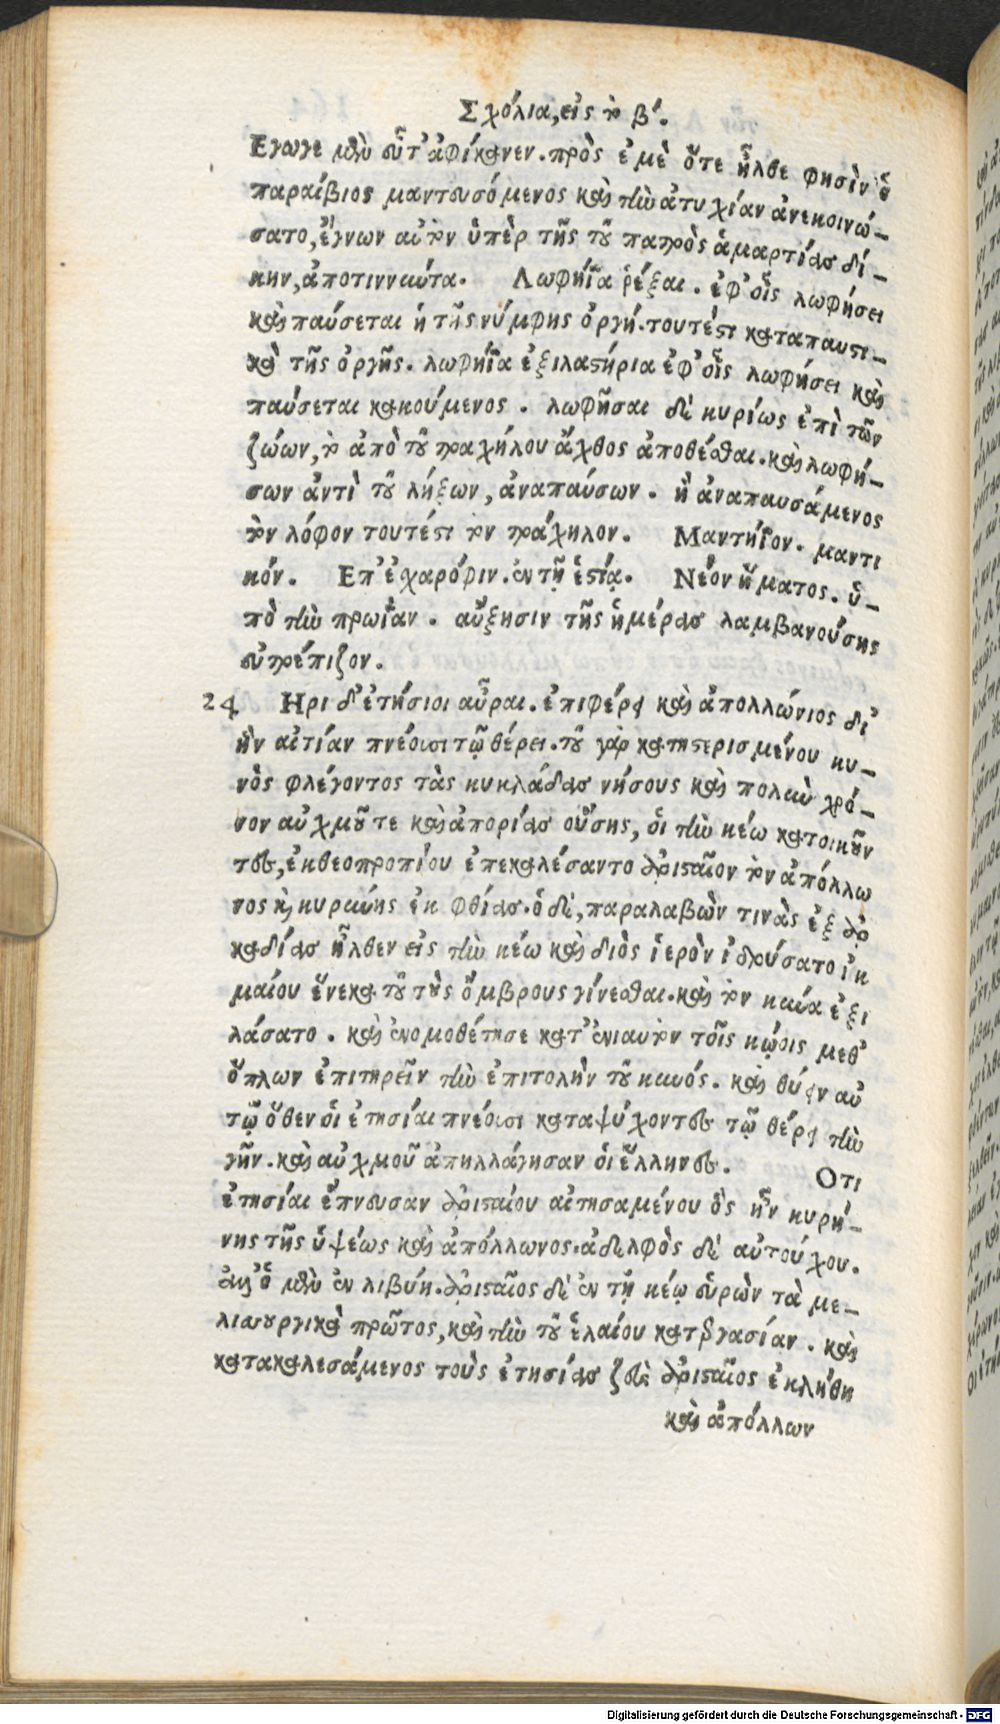 Σχόλια, εἰς τὸ β'.
Εγωγε μὲν εὖτ' ἀφίκανεν. πρὸς ἐμὲ ὅτε ἦλθε φησὶν ὁ
παραίβιος μαντευσόμενος καὶ τὴν ἀτυχίαν ἀνεκοινώ-
σατο, ἔγνων αὐτὸν ὑπὲρ τῆς τοῦ πατρὸς ἁμαρτίας δί-
κην, ἀποτιννύντα. Λωφήϊα ῥέξαι. ἐφ' οἷς λωφήσει
καὶ παύσεται ἡ τῆς νύμφης ὀργή. τουτέστι καταπαυστι-
κὰ τῆς ὀργῆς. λωφήϊα ἐξιλαστήρια ἐφ' οἷς λωφήσει καὶ
παύσεται κακούμενος. λωφῆσαι δὲ κυρίως ἐπὶ τῶν
ζώων, τὸ ἀπὸ τοῦ τραχήλου ἄχθος ἀποθέσθαι. καὶ λωφή-
σων ἀντὶ τοῦ λήξων, ἀναπαύσων. ἢ ἀναπαυσάμενος
τὸν λόφον τουτέστι τὸν τράχηλον. Μαντήϊον. μαντι
κόν. Επ' ἐχαρόφιν. ἐν τῇ ἑστίᾳ. Νέον ἤματος. ὑ-
πὸ τὴν πρωΐαν. αὔξησιν τῆς ἡμέρας λαμβανούσης
εὐτρέπιζον.
24 Ηρι δ' ἐτήσιοι αὖραι. ἐπιφέρει καὶ ἀπολλώνιος δι'
ἣν αἰτίαν πνέουσι τῷ θέρει. τοῦ γὰρ κατηστερισμένου κυ-
νὸς φλέγοντος τὰς κυκλάδας νήσους καὶ πολὺν χρό-
νον αὐχμοῦ τε καὶ ἀπορίας οὔσης, οἱ τὴν κέω κατοικοῦν
τες, ἐκ θεοπροπίου ἐπεκαλέσαντο ἀρισταῖον τὸν ἀπόλλω
νος καὶ κυρήνης ἐκ φθίας. ὁ δὲ, παραλαβὼν τινὰς ἐξ ἀρ
καδίας ἦλθεν εἰς τὴν κέω καὶ διὸς ἱερὸν ἱδρύσατο ἰκ
μαίου ἕνεκα τοῦ τοὺς ὄμβρους γίνεσθαι. καὶ τὸν κύνα ἐξι
λάσατο. καὶ ἐνομοθέτησε κατ' ἐνιαυτὸν τοῖς κῴοις μεθ'
ὅπλων ἐπιτηρεῖν τὴν ἐπιτολὴν τοῦ κυνός. καὶ θύειν αὐ
τῷ ὅθεν οἱ ἐτησίαι πνέουσι καταψύχοντες τῷ θέρει τὴν
γῆν. καὶ αὐχμοῦ ἀπηλλάγησαν οἱ ἕλληνες. Οτι
ἐτησίαι ἔπνευσαν ἀρισταίου αἰτησαμένου ὃς ἦν κυρή-
νης τῆς ὑψέως καὶ ἀπόλλωνος. ἀδελφὸς δὲ αὐτούχου.
ἀλλ' ὁ μὲν ἐν λιβύῃ. ἀρισταῖος δὲ ἐν τῇ κέῳ εὑρὼν τὰ με-
λισσουργικὰ πρῶτος, καὶ τὴν τοῦ ἐλαίου κατεργασίαν. καὶ
κατακαλεσάμενος τοὺς ἐτησίας ζεὺς ἀρισταῖος ἐκλήθη
καὶ ἀπόλλων
Digitalisierung gefördert durch die Deutsche Forschungsgemeinschaft - DFG